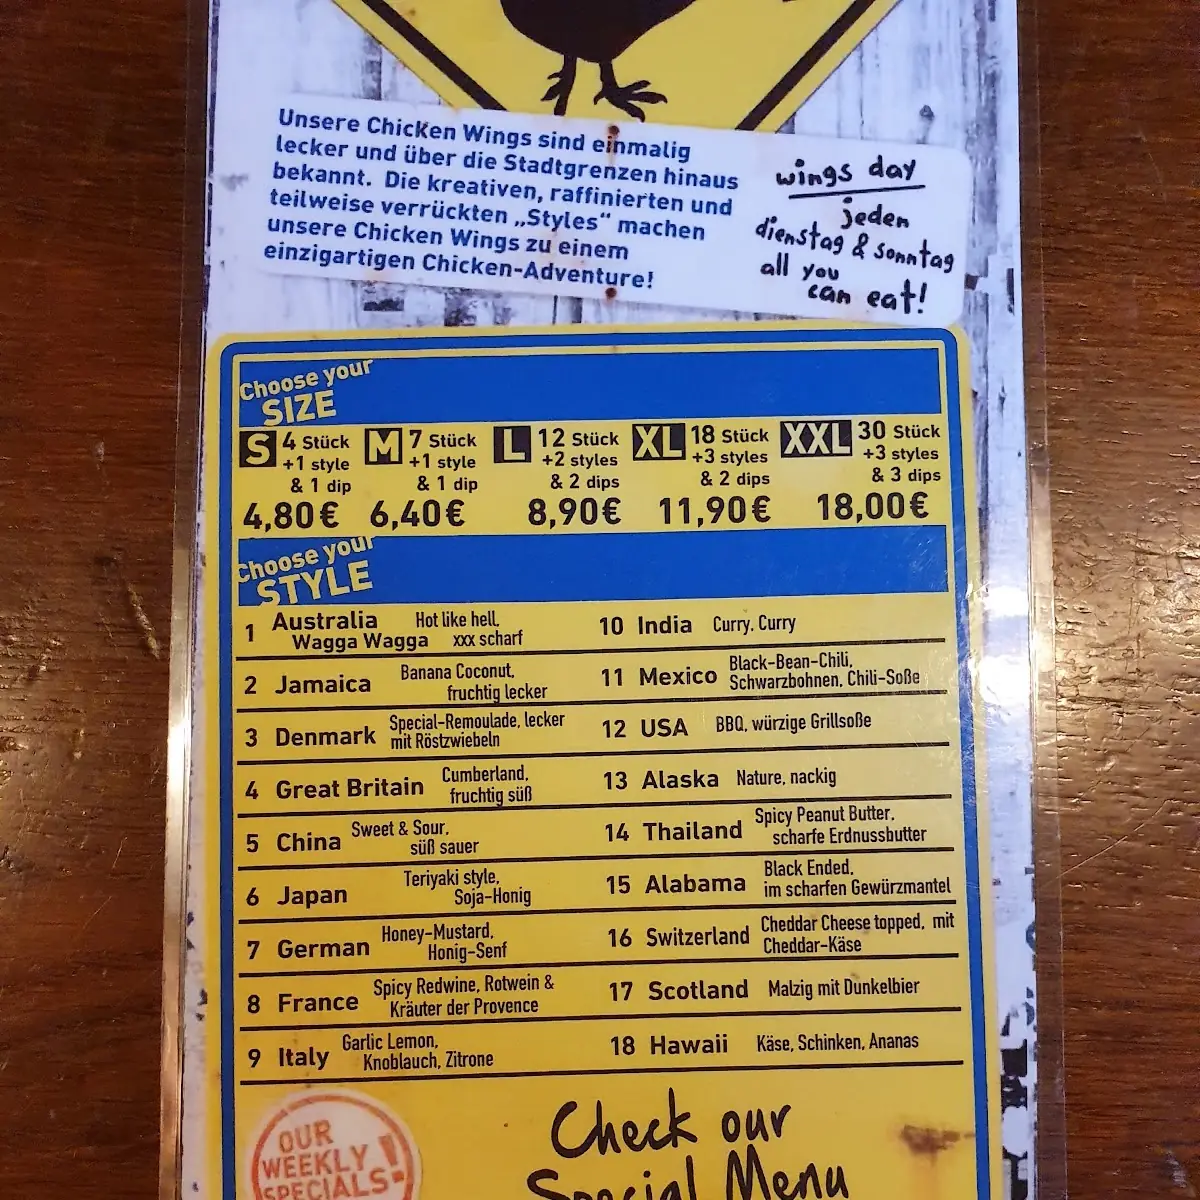 Unsere Chicken Wings sind einmalig
lecker und über die Stadtgrenzen hinaus
bekannt. Die kreativen, raffinierten und
teilweise verrückten „Styles“ machen
unsere Chicken Wings zu einem
einzigartigen Chicken-Adventure!
wings day
jeden
dienstag & sonntag
all you
can eat!
Choose your
SIZE
S 4 Stück
+1 style
& 1 dip
4,80€
M 7 Stück
+1 style
& 1 dip
6,40€
L 12 Stück
+2 styles
& 2 dips
8,90€
XL 18 Stück
+3 styles
& 2 dips
11,90€
XXL 30 Stück
+3 styles
& 3 dips
18,00€
Choose your
STYLE
1 Australia Hot like hell,
Wagga Wagga xxx scharf
2 Jamaica Banana Coconut,
fruchtig lecker
3 Denmark Special-Remoulade, lecker
mit Röstzwiebeln
4 Great Britain Cumberland,
fruchtig süß
5 China Sweet & Sour,
süß sauer
6 Japan Teriyaki style,
Soja-Honig
7 German Honey-Mustard,
Honig-Senf
8 France Spicy Redwine, Rotwein &
Kräuter der Provence
9 Italy Garlic Lemon,
Knoblauch, Zitrone
10 India Curry, Curry
11 Mexico Black-Bean-Chili,
Schwarzbohnen, Chili-Soße
12 USA BBQ, würzige Grillsoße
13 Alaska Nature, nackig
14 Thailand Spicy Peanut Butter,
scharfe Erdnussbutter
15 Alabama Black Ended,
im scharfen Gewürzmantel
16 Switzerland Cheddar Cheese topped, mit
Cheddar-Käse
17 Scotland Malzig mit Dunkelbier
18 Hawaii Käse, Schinken, Ananas
OUR
WEEKLY
SPECIALS!
Check our
Special Menu